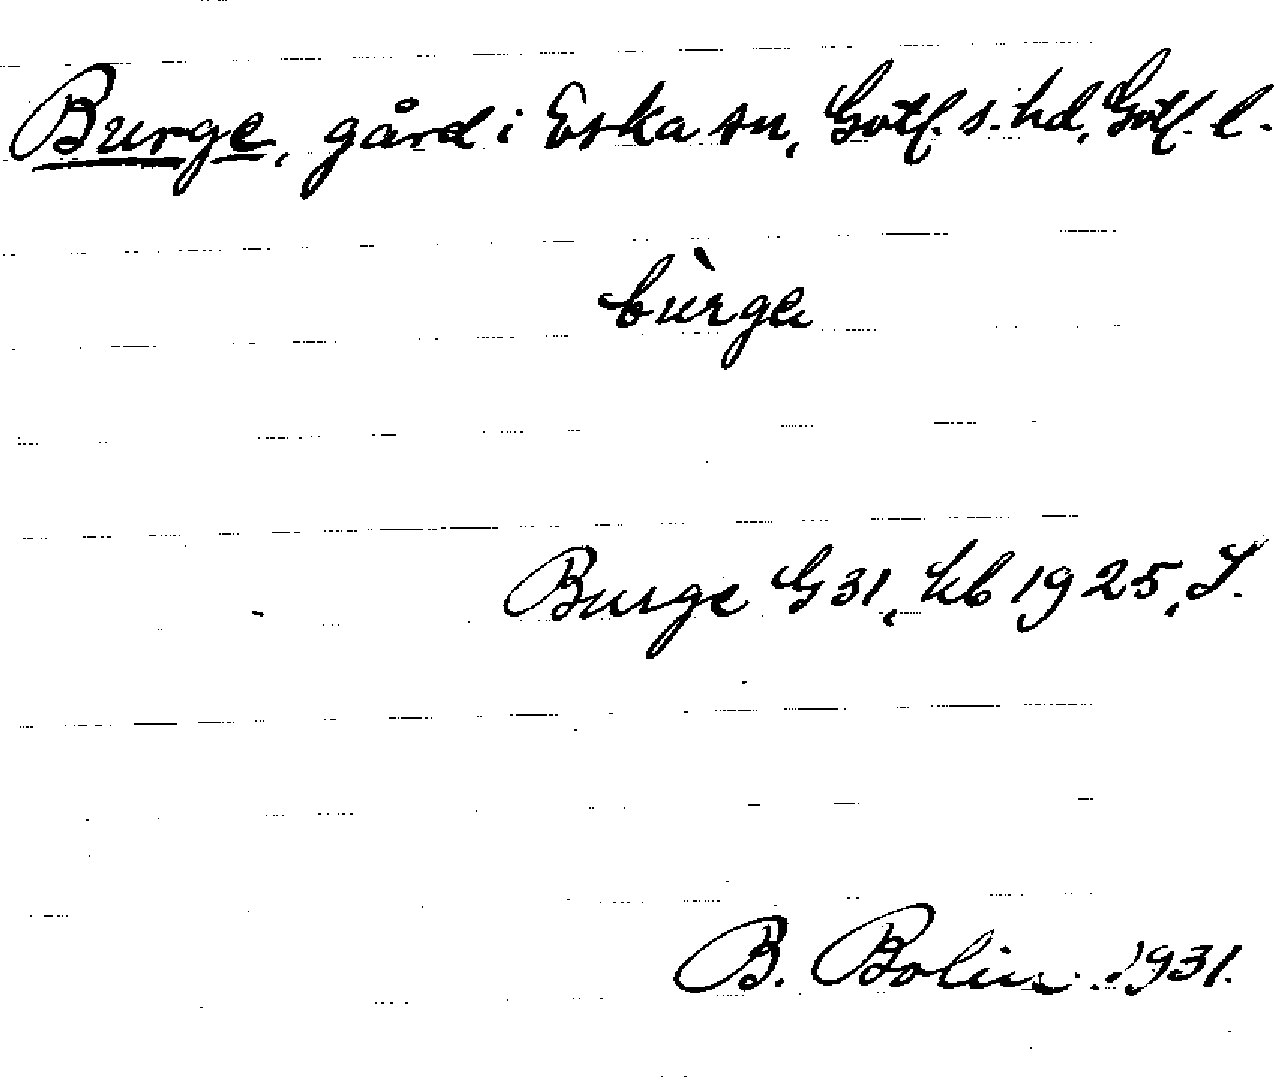 Burge, gård i Eska sn, Gotl. s. hd, Gotl. l.
bùrge
Burge G 31, kb 1925, J.
B. Bolin 1931.